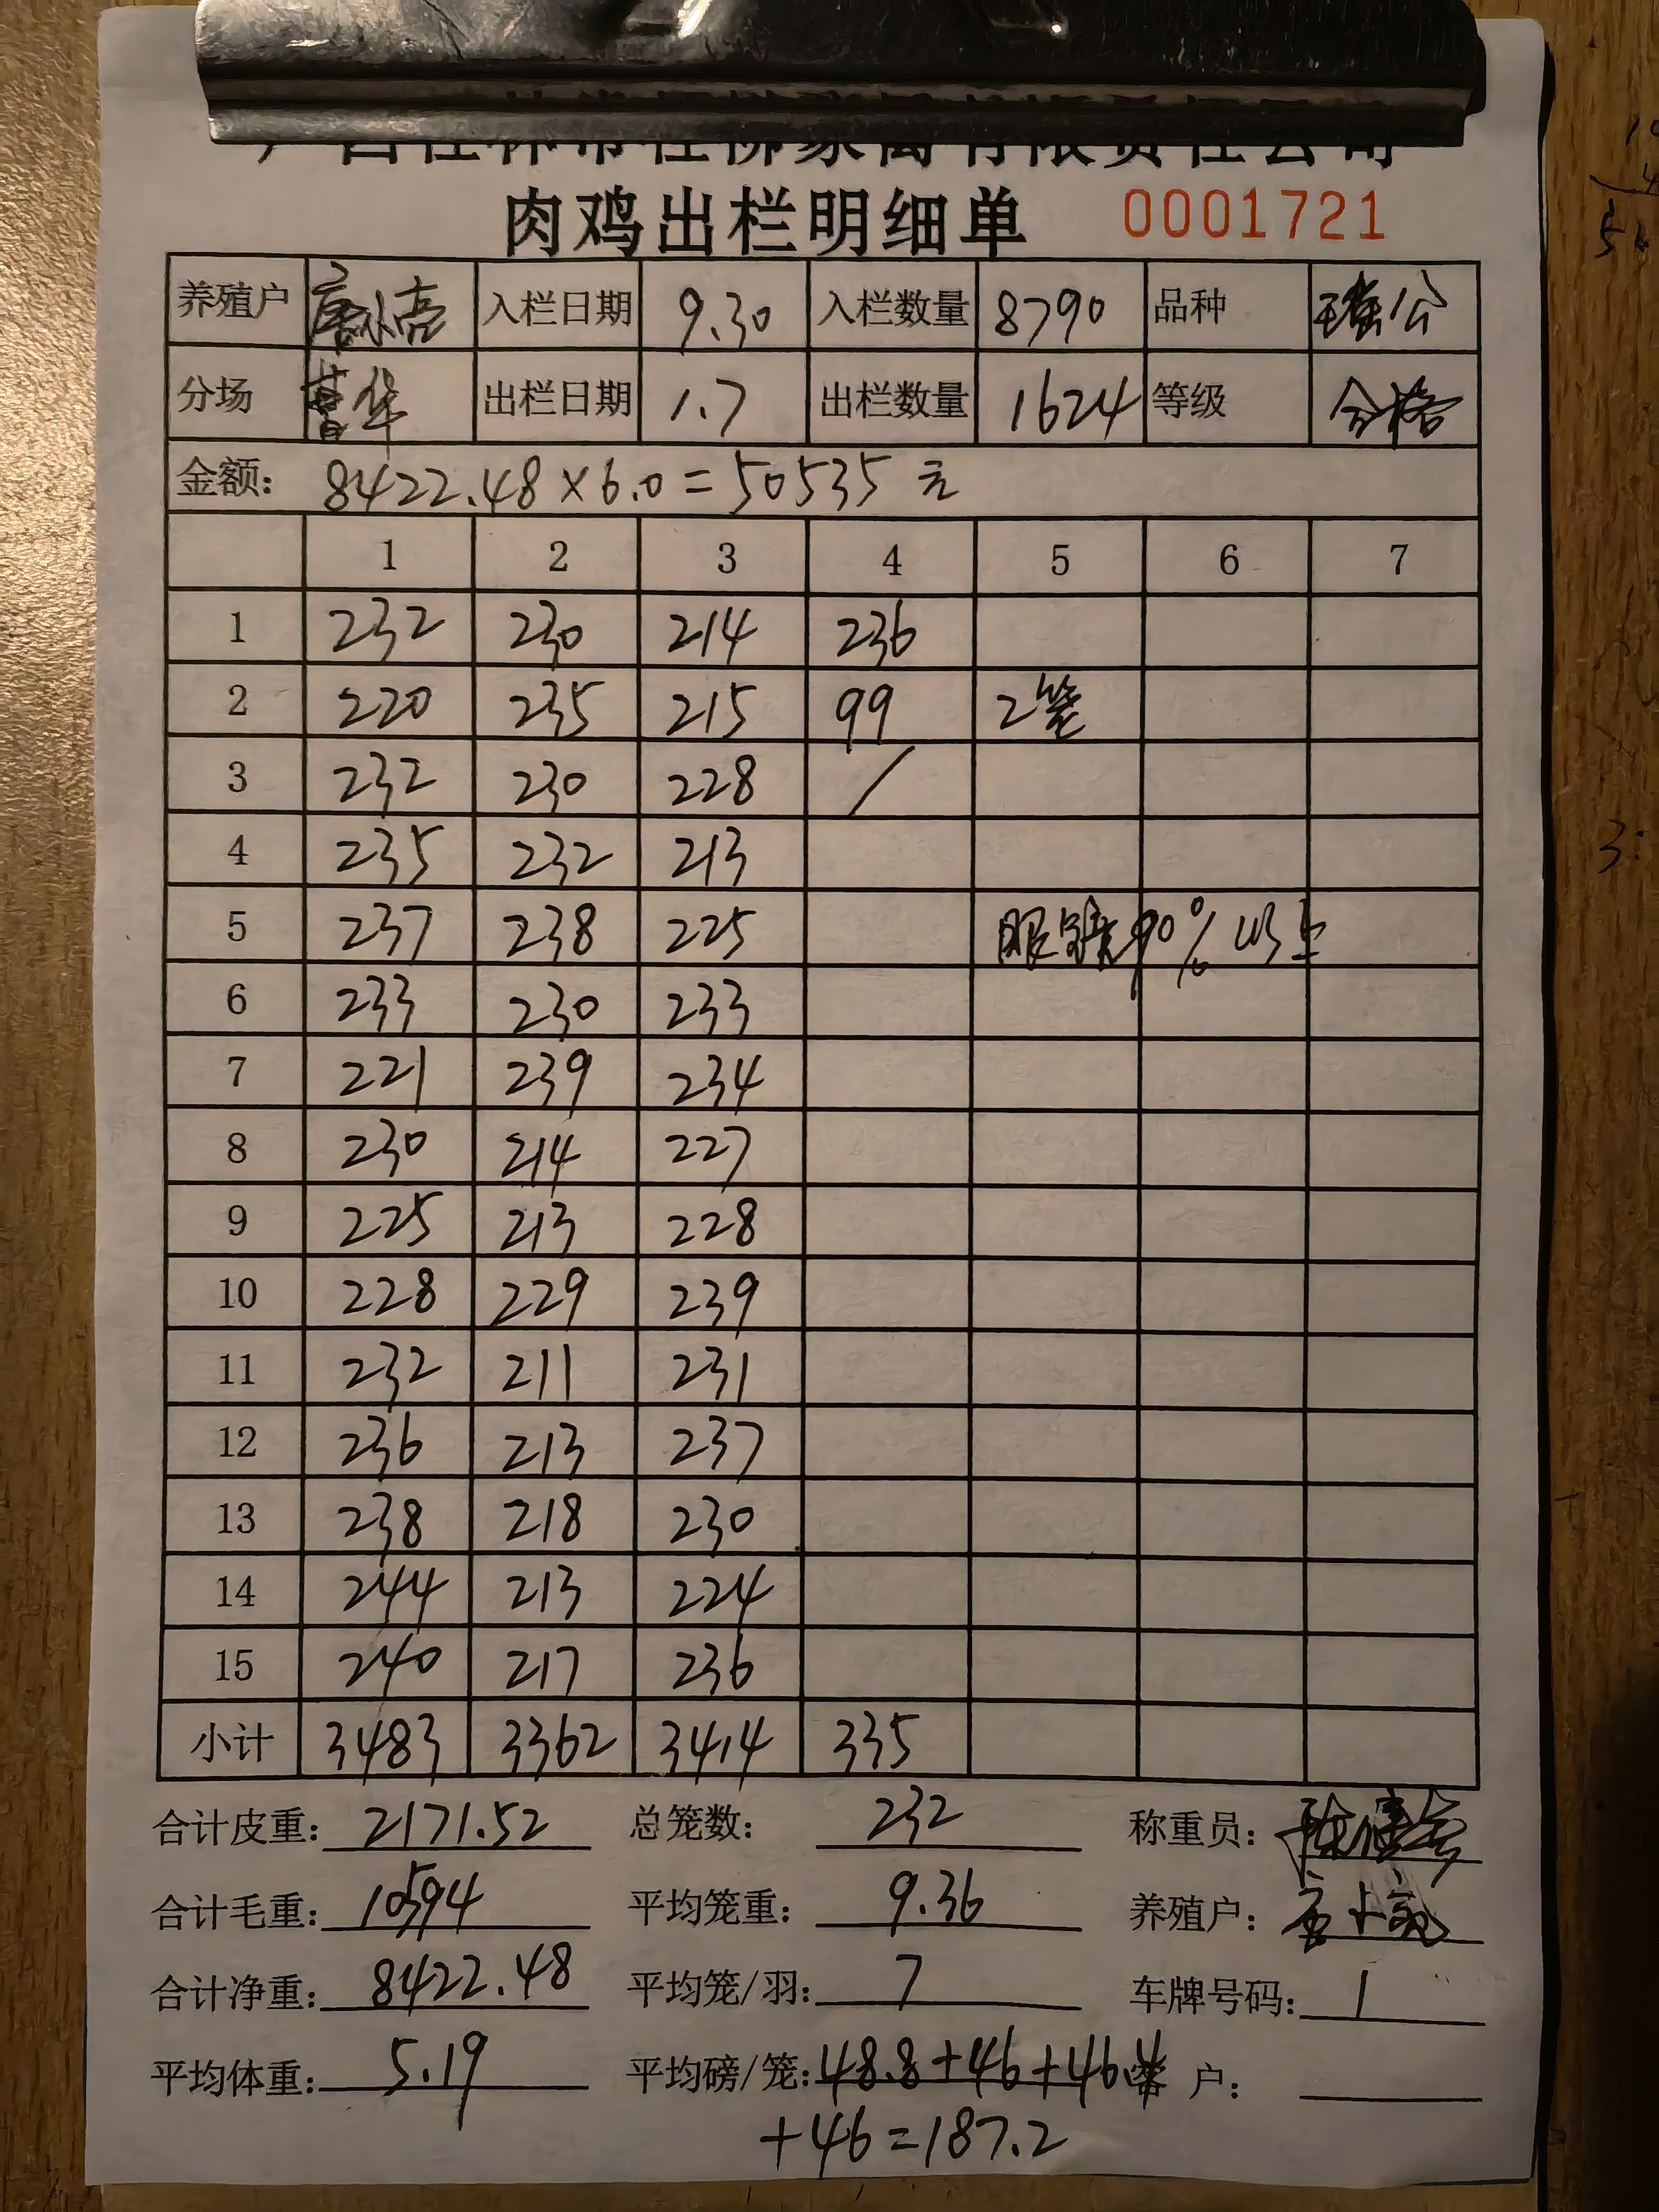 肉鸡出栏明细单 0001721
养殖户 唐小亮 入栏日期 9.30 入栏数量 8790 品种 瑶公
分场 菖华 出栏日期 1.7 出栏数量 1624 等级 合格
金额: 8422.48×6.0=50535元
1 2 3 4 5 6 7
1 232 230 214 236
2 220 235 215 99 2笼
3 232 230 228 /
4 235 232 213
5 237 238 225 90%以上
6 233 230 233
7 221 239 234
8 230 214 227
9 225 213 228
10 228 229 239
11 232 211 231
12 236 213 237
13 238 218 230
14 244 213 224
15 240 217 236
小计 3483 3362 3414 335
合计皮重: 2171.52 总笼数: 232 称重员:
合计毛重: 10594 平均笼重: 9.36 养殖户: 唐小亮
合计净重: 8422.48 平均笼/羽: 7 车牌号码: 1
平均体重: 5.19 平均磅/笼: 48.8+46+46.4 客 户:
+46=187.2